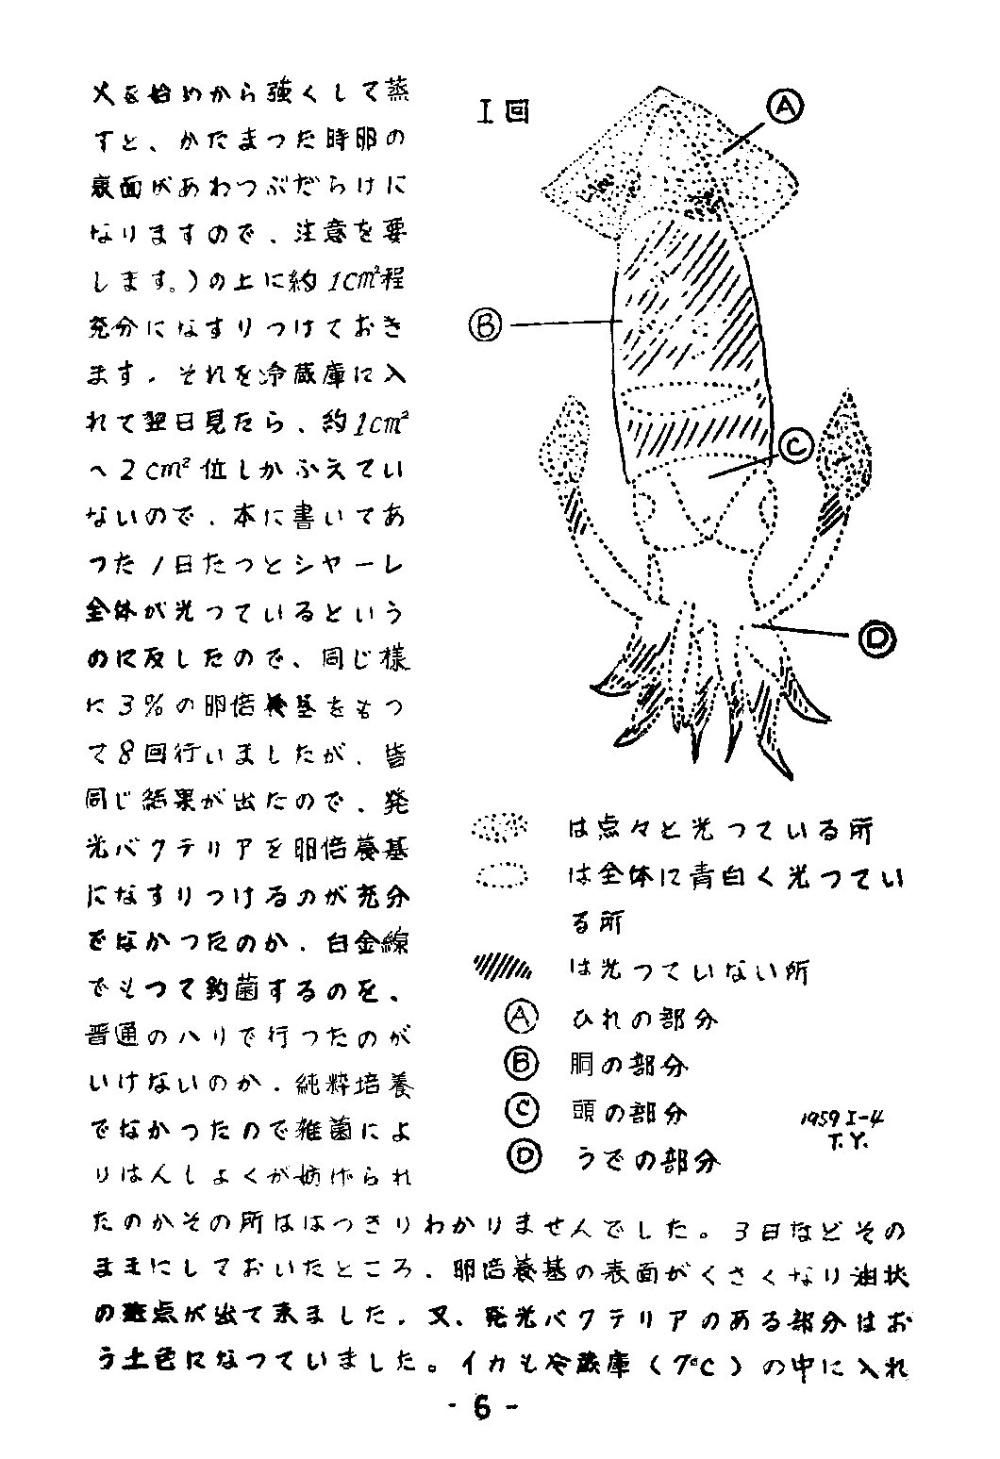 火を始めから強くして蒸
すと、かたまつた時卵の
表面があわつぶだらけに
なりますので、注意を要
します。)の上に約1cm²程
充分になすりつけておき
ます。それを冷蔵庫に入
れて翌日見たら、約1cm²
へ2cm²位しかふえてい
ないので、本に書いてあ
つた1日たつとシヤーレ
全体が光つているという
のに反したので、同じ様
に3%の卵倍養基をもつ
て8回行いましたが、皆
同じ結果が出たので、発
光バクテリアを卵倍養基
になすりつけるのが充分
でなかつたのか、白金線
でもつて釣菌するのを、
普通のハリで行つたのが
いけないのか、純粋培養
でなかつたので雑菌によ
りはんしよくが妨げられ
たのかその所ははつきりわかりませんでした。3日などその
ままにしておいたところ、卵倍養基の表面がくさくなり油状
の斑点が出て来ました。又、発光バクテリアのある部分はお
う土色になつていました。イカも冷蔵庫(7℃)の中に入れ
I回
A
B
C
D
は点々と光つている所
は全体に青白く光つてい
る所
は光つていない所
A ひれの部分
B 胴の部分
C 頭の部分
D うでの部分
1959 I-4
T.Y.
-6-